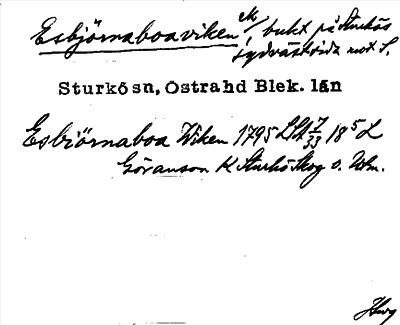 Esbjörnaboaviken ek/, bukt på Sturkös
sydvästsida mot S.
Sturkö sn, Östra hd Blek. län
Esbiörnaboa Wiken 1795 LSA 7/33 18⁵ L
Göranson K Sturkö Skog o. Utm.